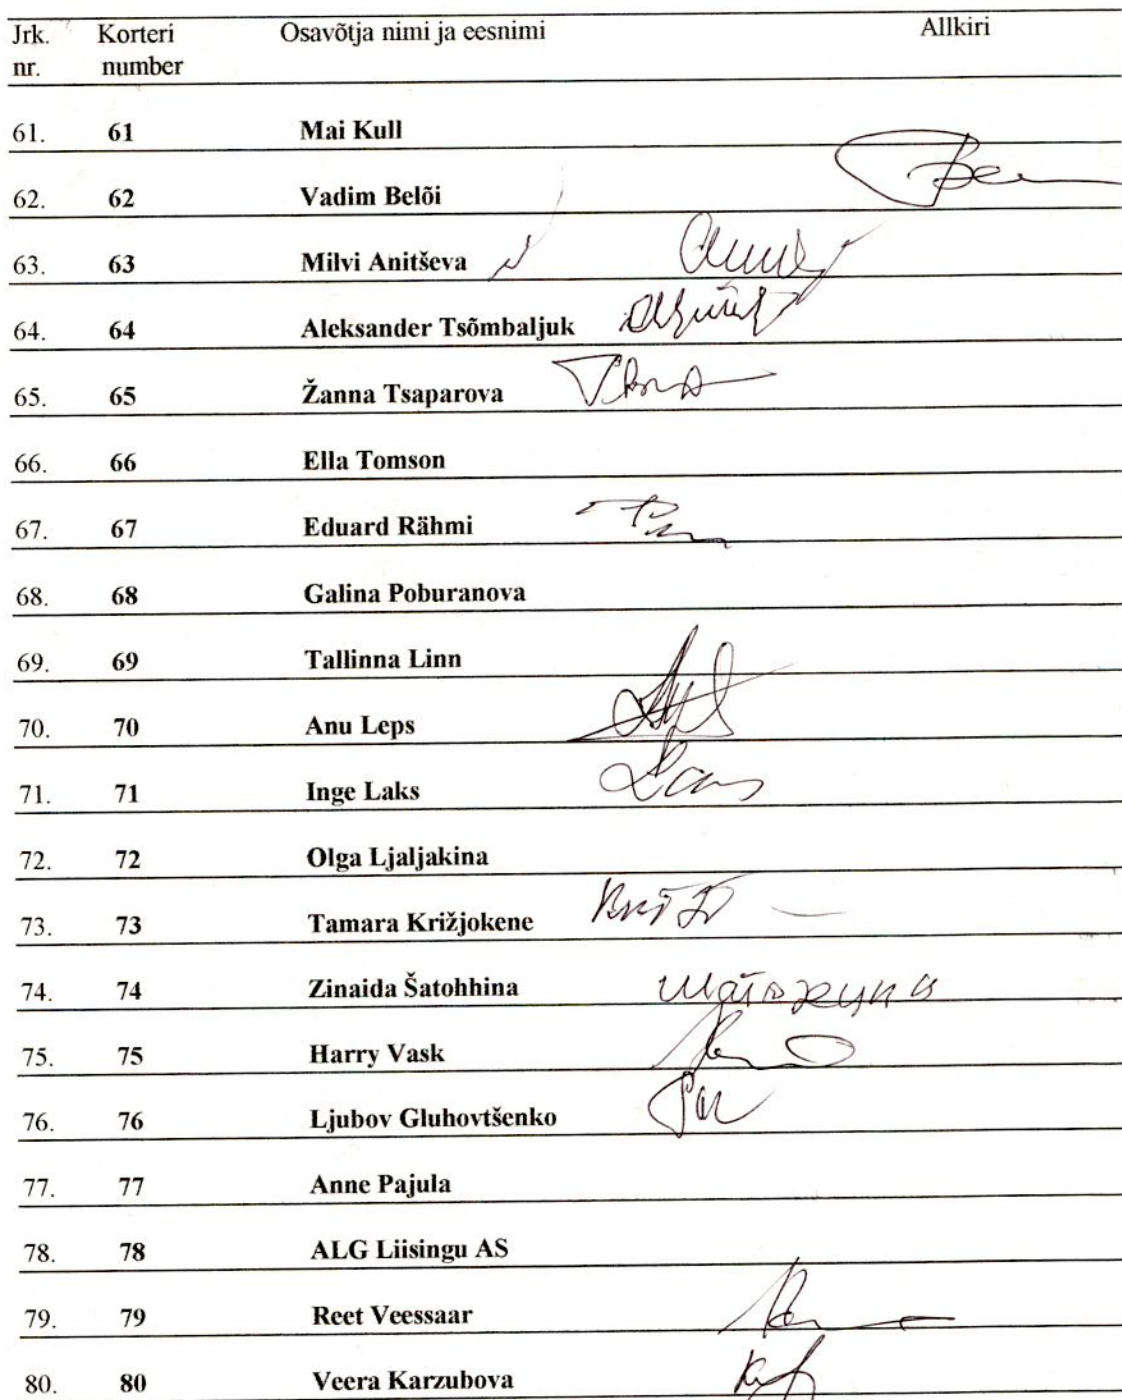 Jrk. Korteri Osavõtja nimi ja eesnimi Allkiri
nr. number
61. 61 Mai Kull
62. 62 Vadim Belõi
63. 63 Milvi Anitševa
64. 64 Aleksander Tsõmbaljuk
65. 65 Žanna Tsaparova
66. 66 Ella Tomson
67. 67 Eduard Rähmi
68. 68 Galina Poburanova
69. 69 Tallinna Linn
70. 70 Anu Leps
71. 71 Inge Laks
72. 72 Olga Ljaljakina
73. 73 Tamara Križjokene
74. 74 Zinaida Šatohhina Шатохина
75. 75 Harry Vask
76. 76 Ljubov Gluhovtšenko
77. 77 Anne Pajula
78. 78 ALG Liisingu AS
79. 79 Reet Veessaar
80. 80 Veera Karzubova